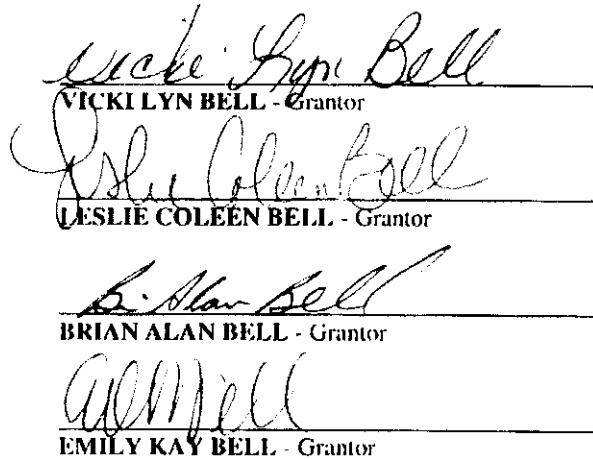 Vicki Lyn Bell
VICKI LYN BELL - Grantor
Leslie Coleen Bell
LESLIE COLEEN BELL - Grantor
Alan Bell
BRIAN ALAN BELL - Grantor
EMILY KAY BELL - Grantor